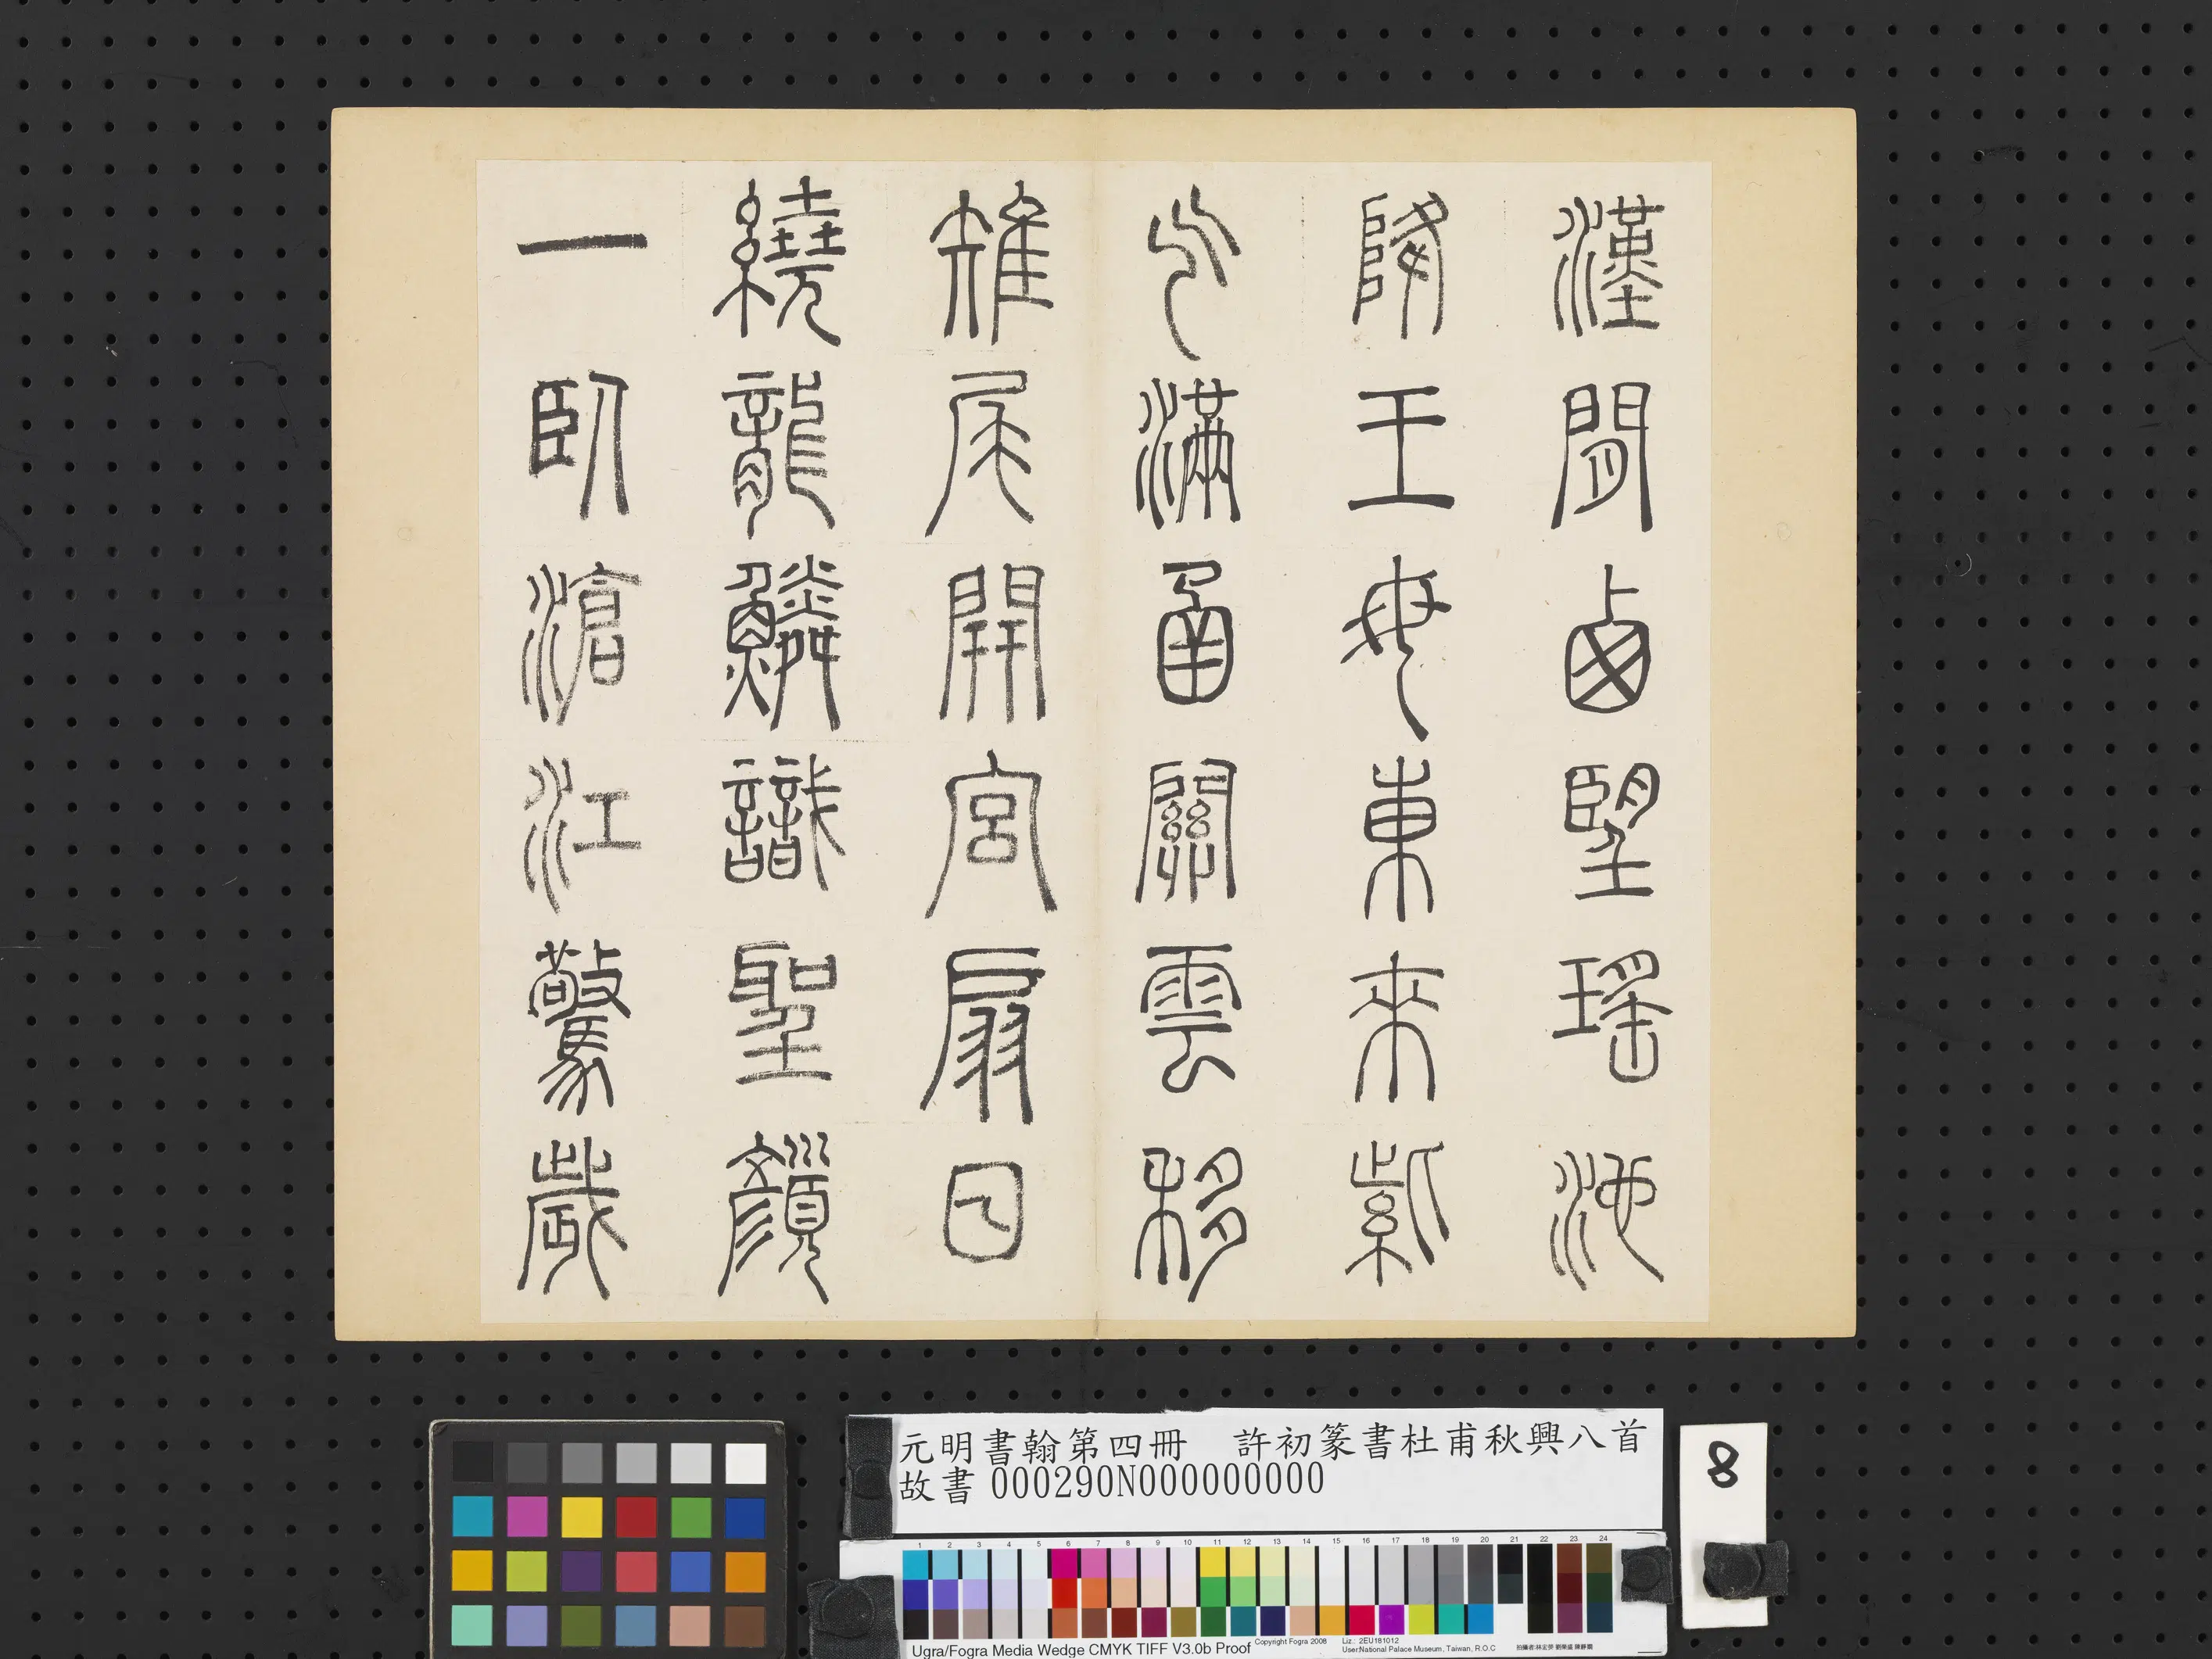 漢間西望瑤池
降王母東來紫
气滿函關雲移
雉尾開宮扇日
繞龍鱗識聖顏
一臥滄江驚歲
元明書翰第四冊　許初篆書杜甫秋興八首
故書 000290N000000000
8
1 2 3 4 5 6 7 8 9 10 11 12 13 14 15 16 17 18 19 20 21 22 23 24
Ugra/Fogra Media Wedge CMYK TIFF V3.0b Proof
Copyright Fogra 2008
Liz.: 2EU181012
User:National Palace Museum, Taiwan, R.O.C